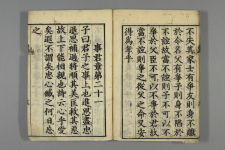 不失其家士有爭友則身不離
於令名父有爭子則身不陷於
不誼故當不誼則子不可以不
爭於父臣不可以不爭於君故
當不誼則爭之從父之命又安
得為孝乎
事君章第二十一
子曰君子之事上也進思盡忠
退思補過將順其美匡救其惡
故上下能相親也詩云心乎愛
矣遐不謂矣忠心臧之何日忘
之